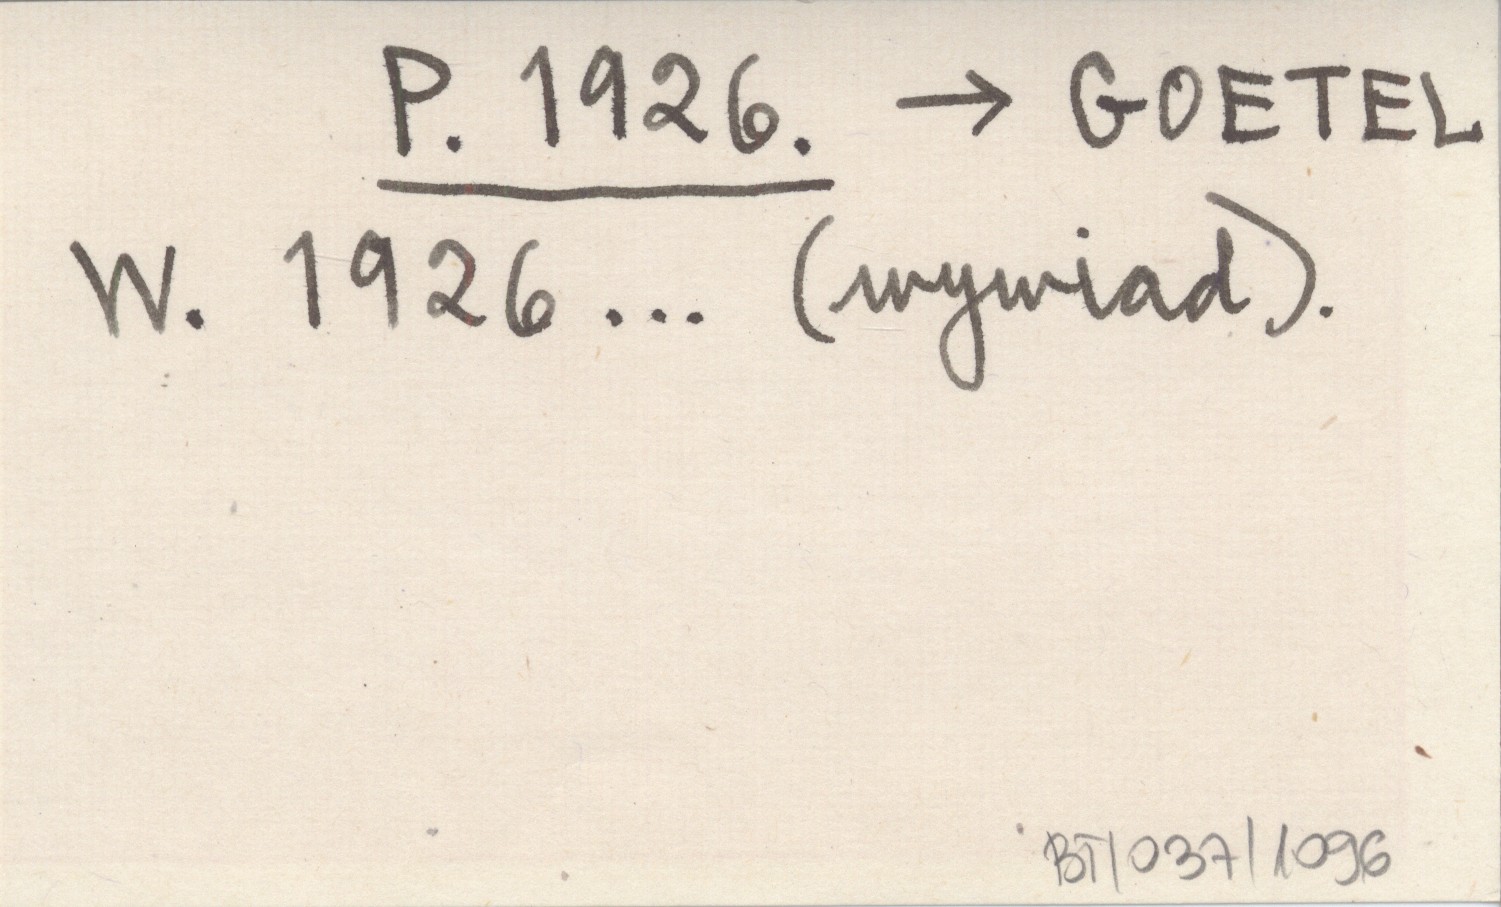 P. 1926. → GOETEL
W. 1926... (wywiad).
BT/037/1096